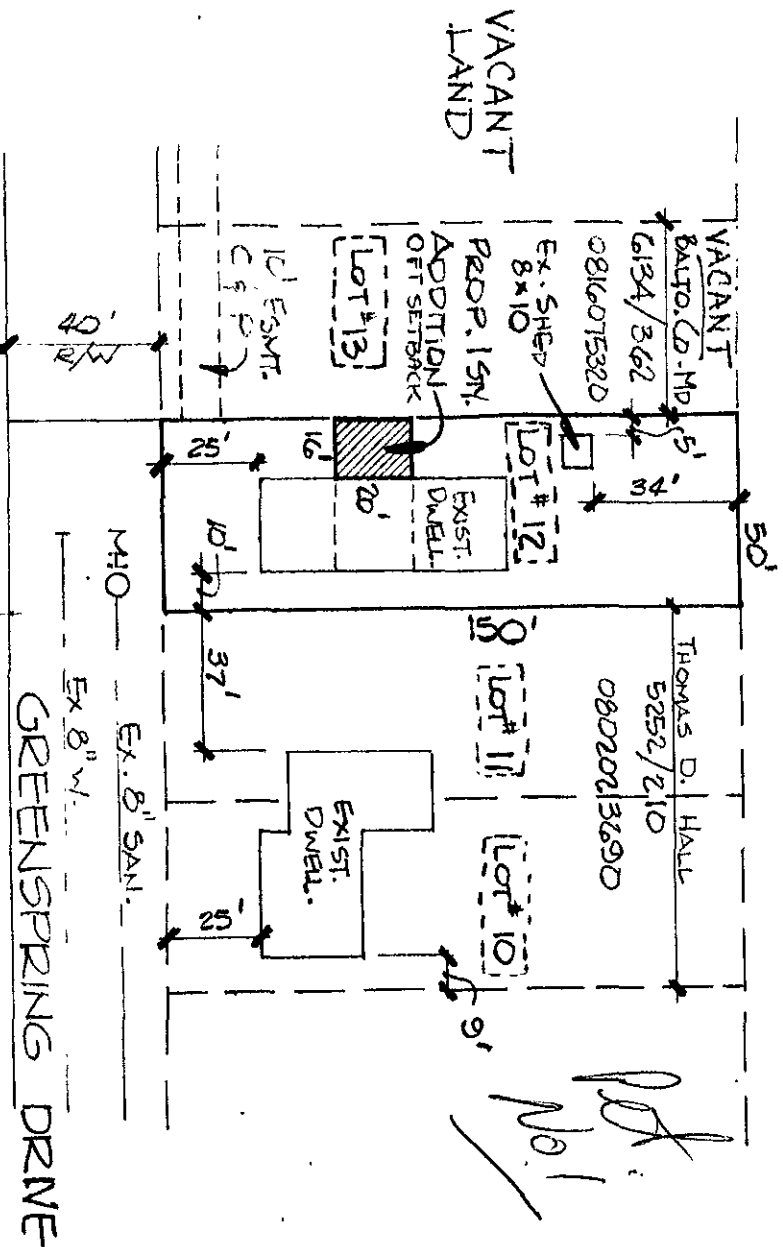 VACANT
LAND
VACANT
BALTO. CO. MD
6134/362
0816075320
5'
50'
EX. SHED
8x10
34'
PROP. 1 STY.
ADDITION
OFF SETBACK
LOT # 13
LOT # 12
EXIST.
DWELL.
16'
20'
10' ESMT.
25'
10'
40'
R/W
THOMAS D. HALL
5252/210
0802023690
150'
LOT # 11
LOT # 10
37'
EXIST.
DWELL.
25'
9'
MHO
EX. 8" SAN.
EX 8" W.
GREENSPRING DRIVE
No 1